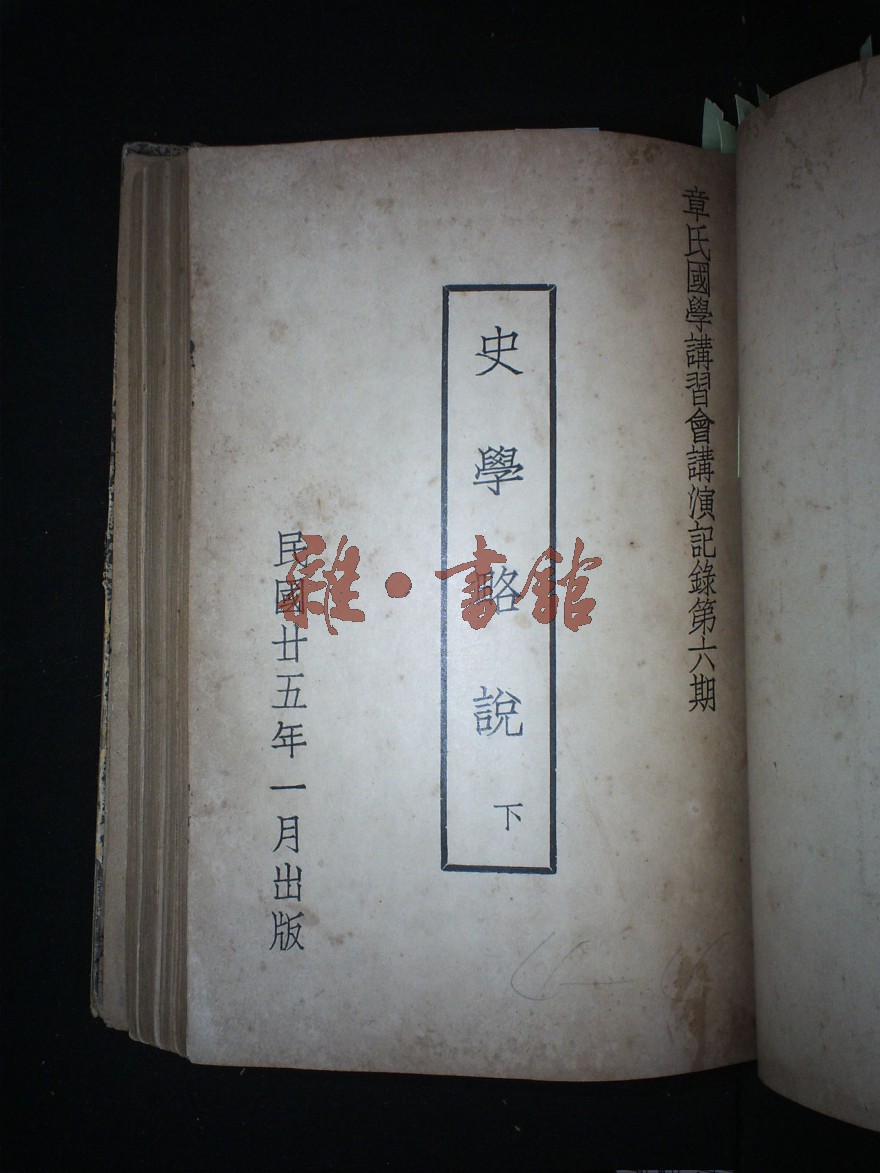 章氏國學講習會講演記錄第六期
史學略說 下
民國廿五年一月出版
雜·書館